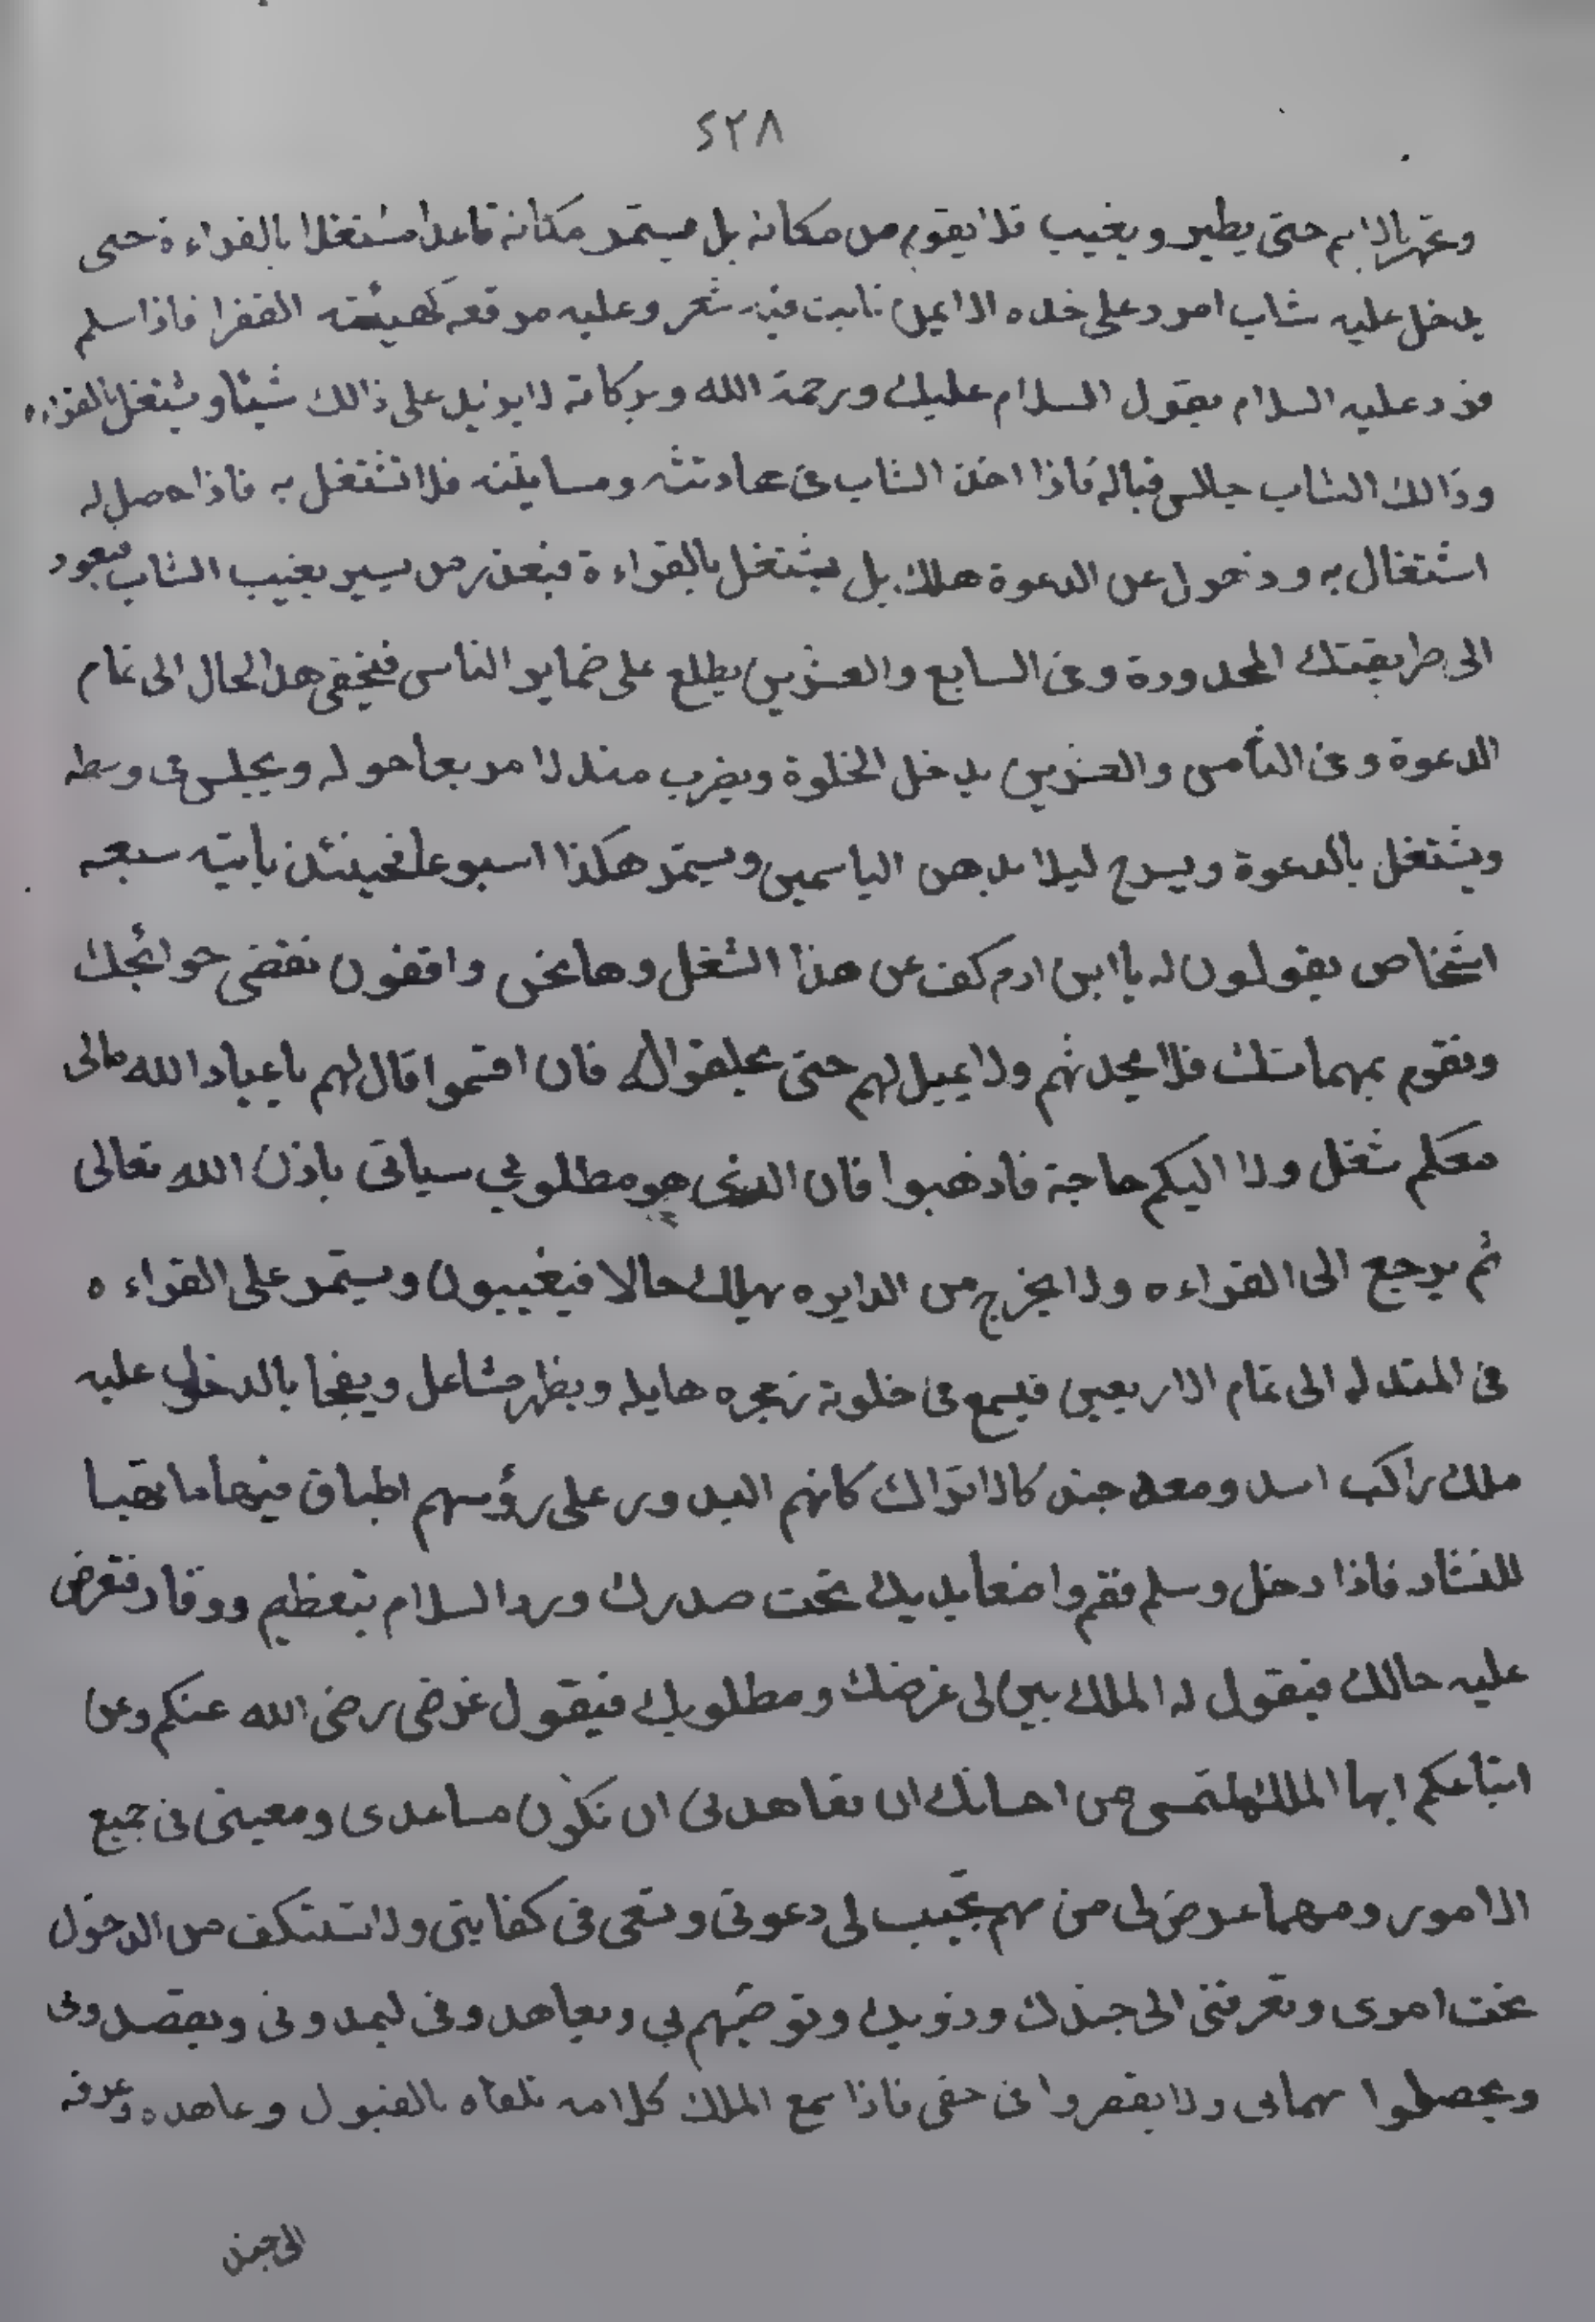 ٤٢٨
حتى يطير ويغيب فلا يقوم من مكانه بل يستمر مكانه قاعدا مشتغلا بالقراءة حتى
يدخل عليه شاب امرد على خده الايمن نابت فيه شعر وعليه مرقعه كهيئته الفقرا فاذا سلم
فرد عليه السلام بقول السلام عليك ورحمة الله وبركاته لا يزيل على ذالك شيئا ويشتغل بالقراءه
وذالك الشاب جالس قباله فاذا اخذ الشاب في محادثته ومسايلته فلا تشتغل به فاذا حصل له
اشتغال به ودخول عن الدعوة هلك بل يشتغل بالقراءة فبعد زمن يسير يغيب الشاب فيعود
الى طريقتك المحدودة وفي السابع والعشرين يطلع على ضماير الناس فيخفي هذا الحال الى تمام
الدعوة وفي الثامن والعشرين يدخل الخلوة ويضرب مندلا مربعا حوله ويجلس في وسطه
ويشتغل بالدعوة ويسرج ليلا بدهن الياسمين ويستمر هكذا اسبوعا فحينئذ يأتيه سبعه
اشخاص يقولون له يا ابن ادم كف عن هذا الشغل وها نحن واقفون نقضى حوائجك
ونقوم بمهماتك فلا يحدثهم ولا يميل لهم حتى يحلقوا له فان اقسموا قال لهم يا عباد الله مالى
معكم شغل ولا اليكم حاجة فاذهبوا فان الذي هو مطلوبي سياتى باذن الله تعالى
ثم يرجع الى القراءه ولا يخرج من الدايره يهلك حالا فيغيبون ويستمر على القراءه
في المندله الى تمام الاربعين فيسمع في خلوته زعجره هايله ويظهر مشاعل ويفجا بالدخول عليه
ملك راكب اسد ومعه جند كالاتراك كانهم البدور على رؤسهم اطباق فيها ما تهيا
للنثار فاذا دخل وسلم فقم واضعا يديك تحت صدرك ورد السلام بتعظيم ووقار فتعرض
عليه حالك فيقول له الملك بين لى غرضك ومطلوبك فيقول غرضى رضى الله عنكم وعن
اتباعكم ايها الملك ملتمس من احسانك ان تعاهدنى ان تكون مساعدى ومعينى فى جميع
الامور ومهما عرض لى من مهم تجيب لى دعوتى وتسعى فى كفايتى ولا تستنكف من الدخول
تحت امرى وتعرفنى الى جندك وذويك وتوصيهم بي ويعاهدونى ليمدونى ويقصدونى
ويحصلوا مهمابى ولا يقصروا فى حقى فاذا سمع الملك كلامه تلقاه بالقبول وعاهده وعرفه
الى جند